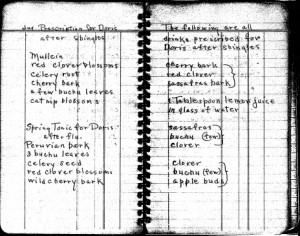 Jas Prescription for Doris
after Shingles
Mullein
red clover blossoms
celery root
cherry bark
a few buchu leaves
catnip blossoms
Spring Tonic for Doris
after flu.
Peruvian bark
3 buchu leaves
celery seed
red clover blossoms
wild cherry bark
The following are all
drinks prescribed for
Doris after shingles
cherry bark
red clover
sassafras bark
1 Tablespoon lemon juice
in glass of water
sassafras
buchu (few)
clover
clover
buchu (few)
apple buds